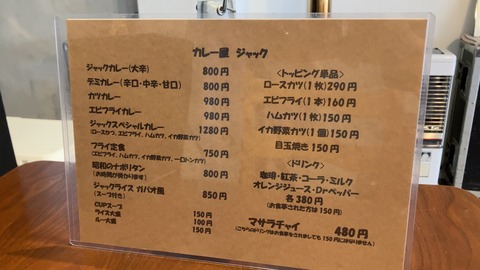 カレー屋 ジャック
ジャックカレー(大辛) 800円
デミカレー(辛口・中辛・甘口) 800円
カツカレー 980円
エビフライカレー 980円
ジャックスペシャルカレー 1280円
(ロースかつ、エビフライ、ハムカツ、イカ野菜カツ)
フライ定食 750円
(エビフライ、ハムカツ、イカ野菜カツ、一口トンカツ)
昭和のナポリタン 800円
(お時間が掛かります)
ジャックライス ガパオ風 850円
(スープ付き)
CUPスープ 150円
ライス大盛 100円
ルー大盛 150円
<トッピング単品>
ロースカツ(1枚)290円
エビフライ(1本)160円
ハムカツ(1枚)150円
イカ野菜カツ(1個)150円
目玉焼き 150円
<ドリンク>
珈琲・紅茶・コーラ・ミルク
オレンジジュース・Drペッパー
各380円
(お食事された方は150円)
マサラチャイ 480円
(こちらのドリンクはお食事をされましても150円にはなりません)